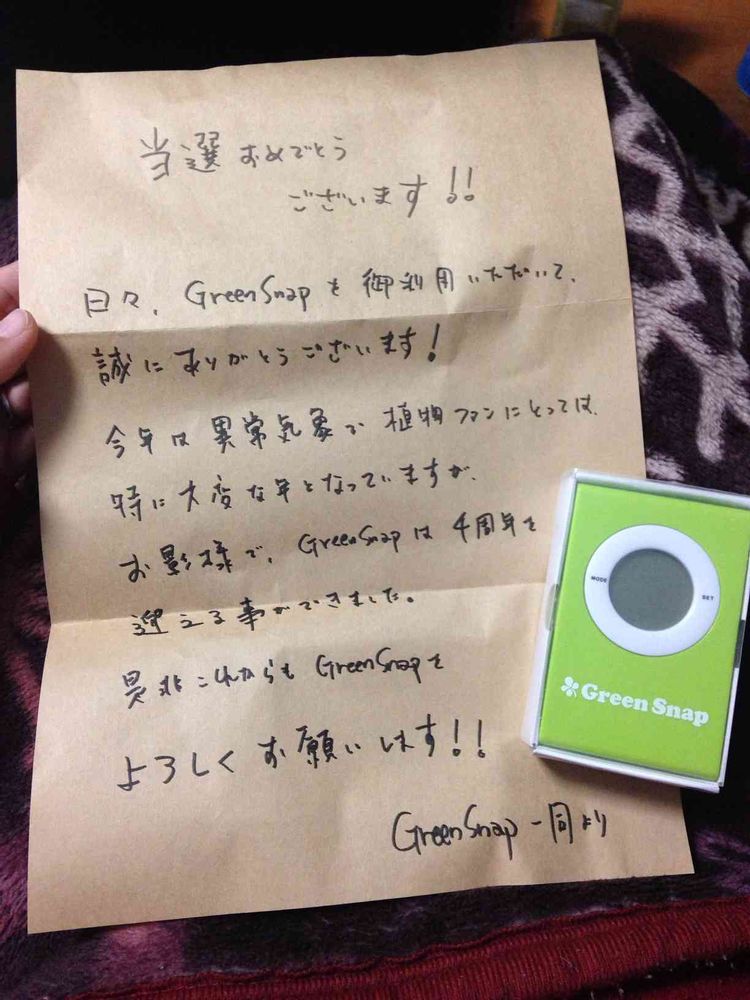 当選おめでとう
ございます!!
日々、GreenSnapを御利用いただいて、
誠にありがとうございます!
今年は異常気象で植物ファンにとっては、
特に大変な年となっていますが、
お影様で、GreenSnapは4周年を
迎える事ができました。
是非これからもGreenSnapを
よろしくお願いします!!
GreenSnap一同より
MODE
SET
Green Snap